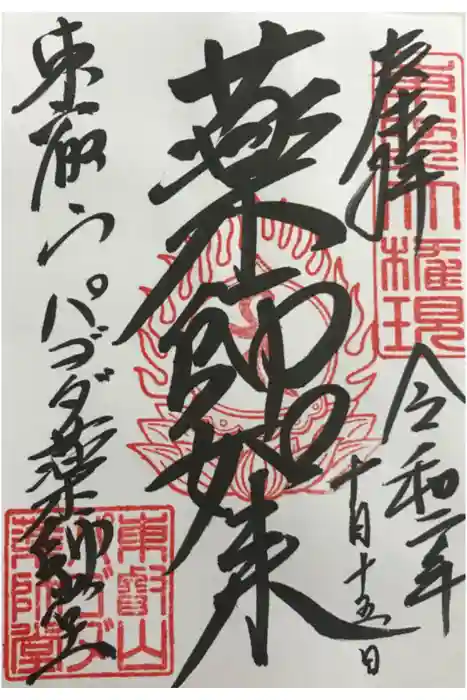 奉拝
令和二年
十月十五日
薬師如来
東叡山パゴダ薬師堂
東照大権現
東叡山
パゴダ
薬師堂